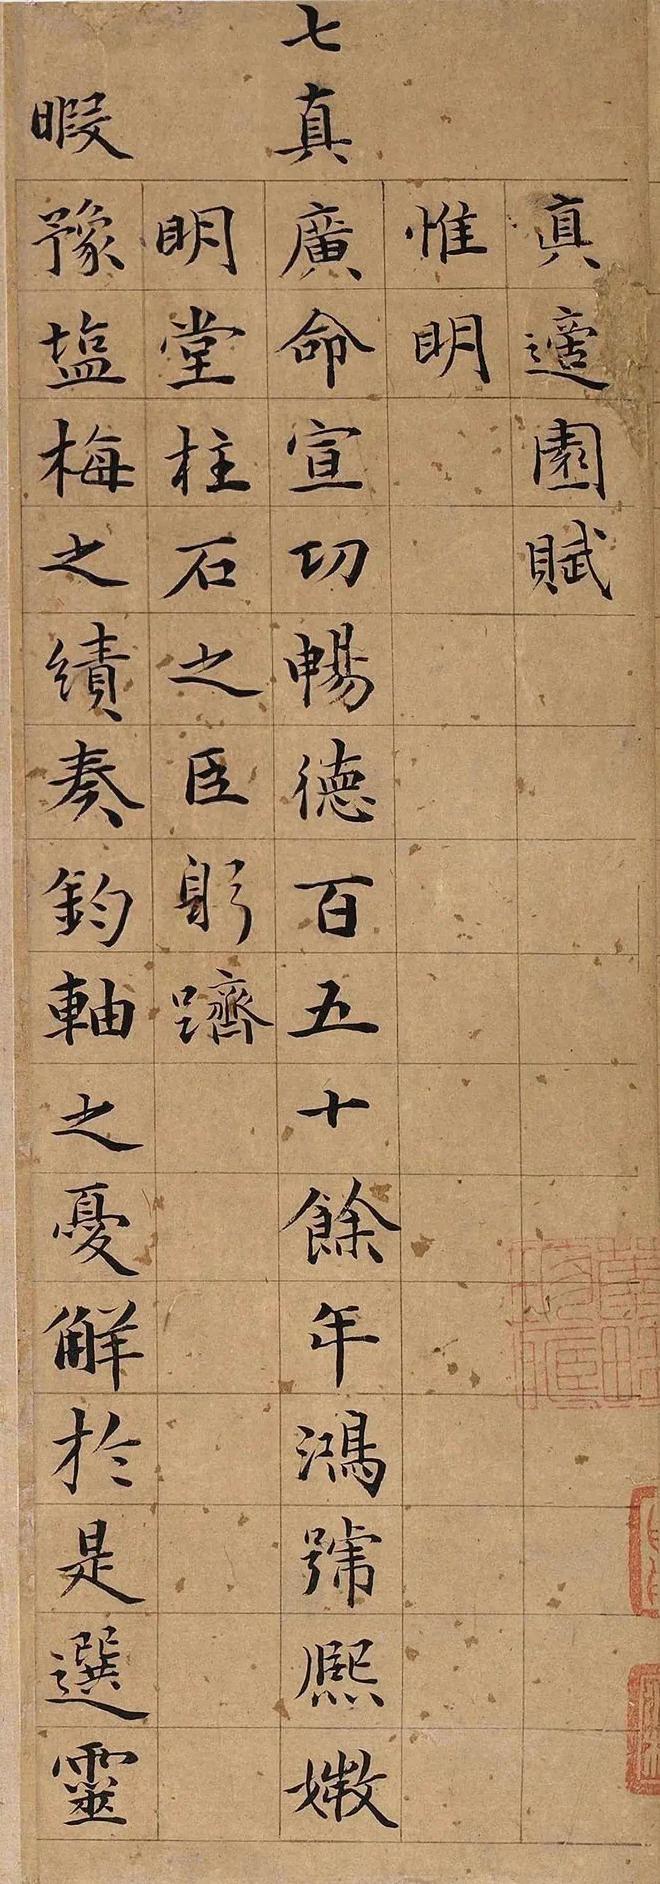 真適園賦
惟明
七真廣命宣功暢德百五十餘年鴻號熙媺
明堂柱石之臣躬躋
暇豫塩梅之績奏鈞軸之憂觧於是選靈